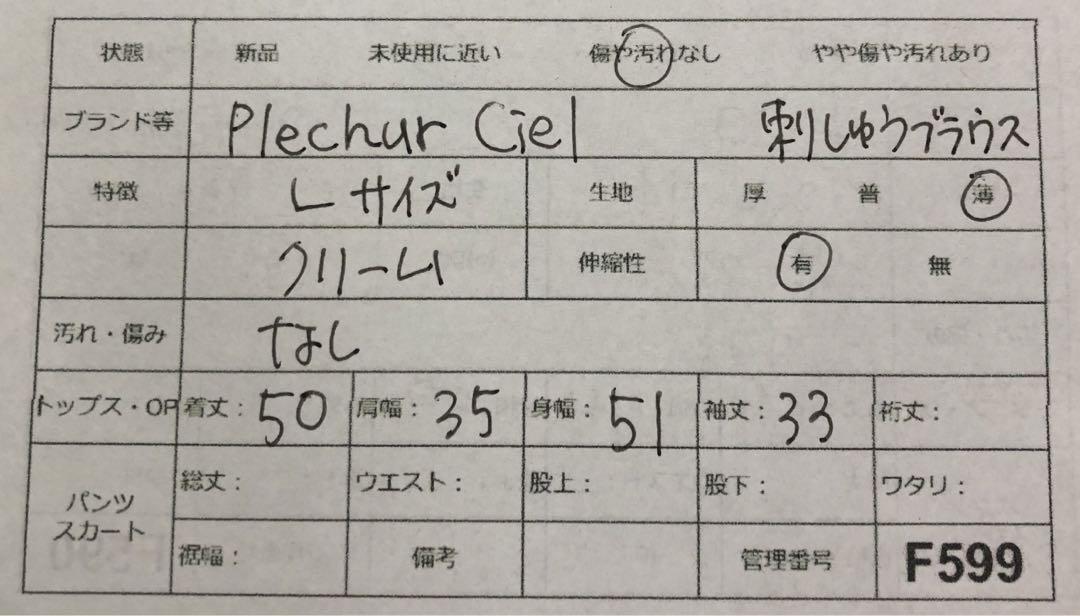 状態 新品 未使用に近い 傷や汚れなし やや傷や汚れあり
ブランド等 Plechur Ciel 刺しゅうブラウス
特徴 Lサイズ 生地 厚 普 薄
クリーム 伸縮性 有 無
汚れ・傷み なし
トップス・OP 着丈: 50 肩幅: 35 身幅: 51 袖丈: 33 裄丈:
パンツ スカート 総丈: ウエスト: 股上: 股下: ワタリ:
裾幅: 備考 管理番号 F599
F590